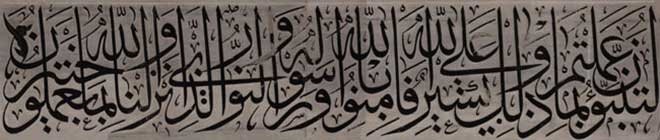 لتنبؤن بما عملتم وذلك على الله يسير فامنوا بالله ورسوله والنور الذي انزلنا والله بما تعملون خبير